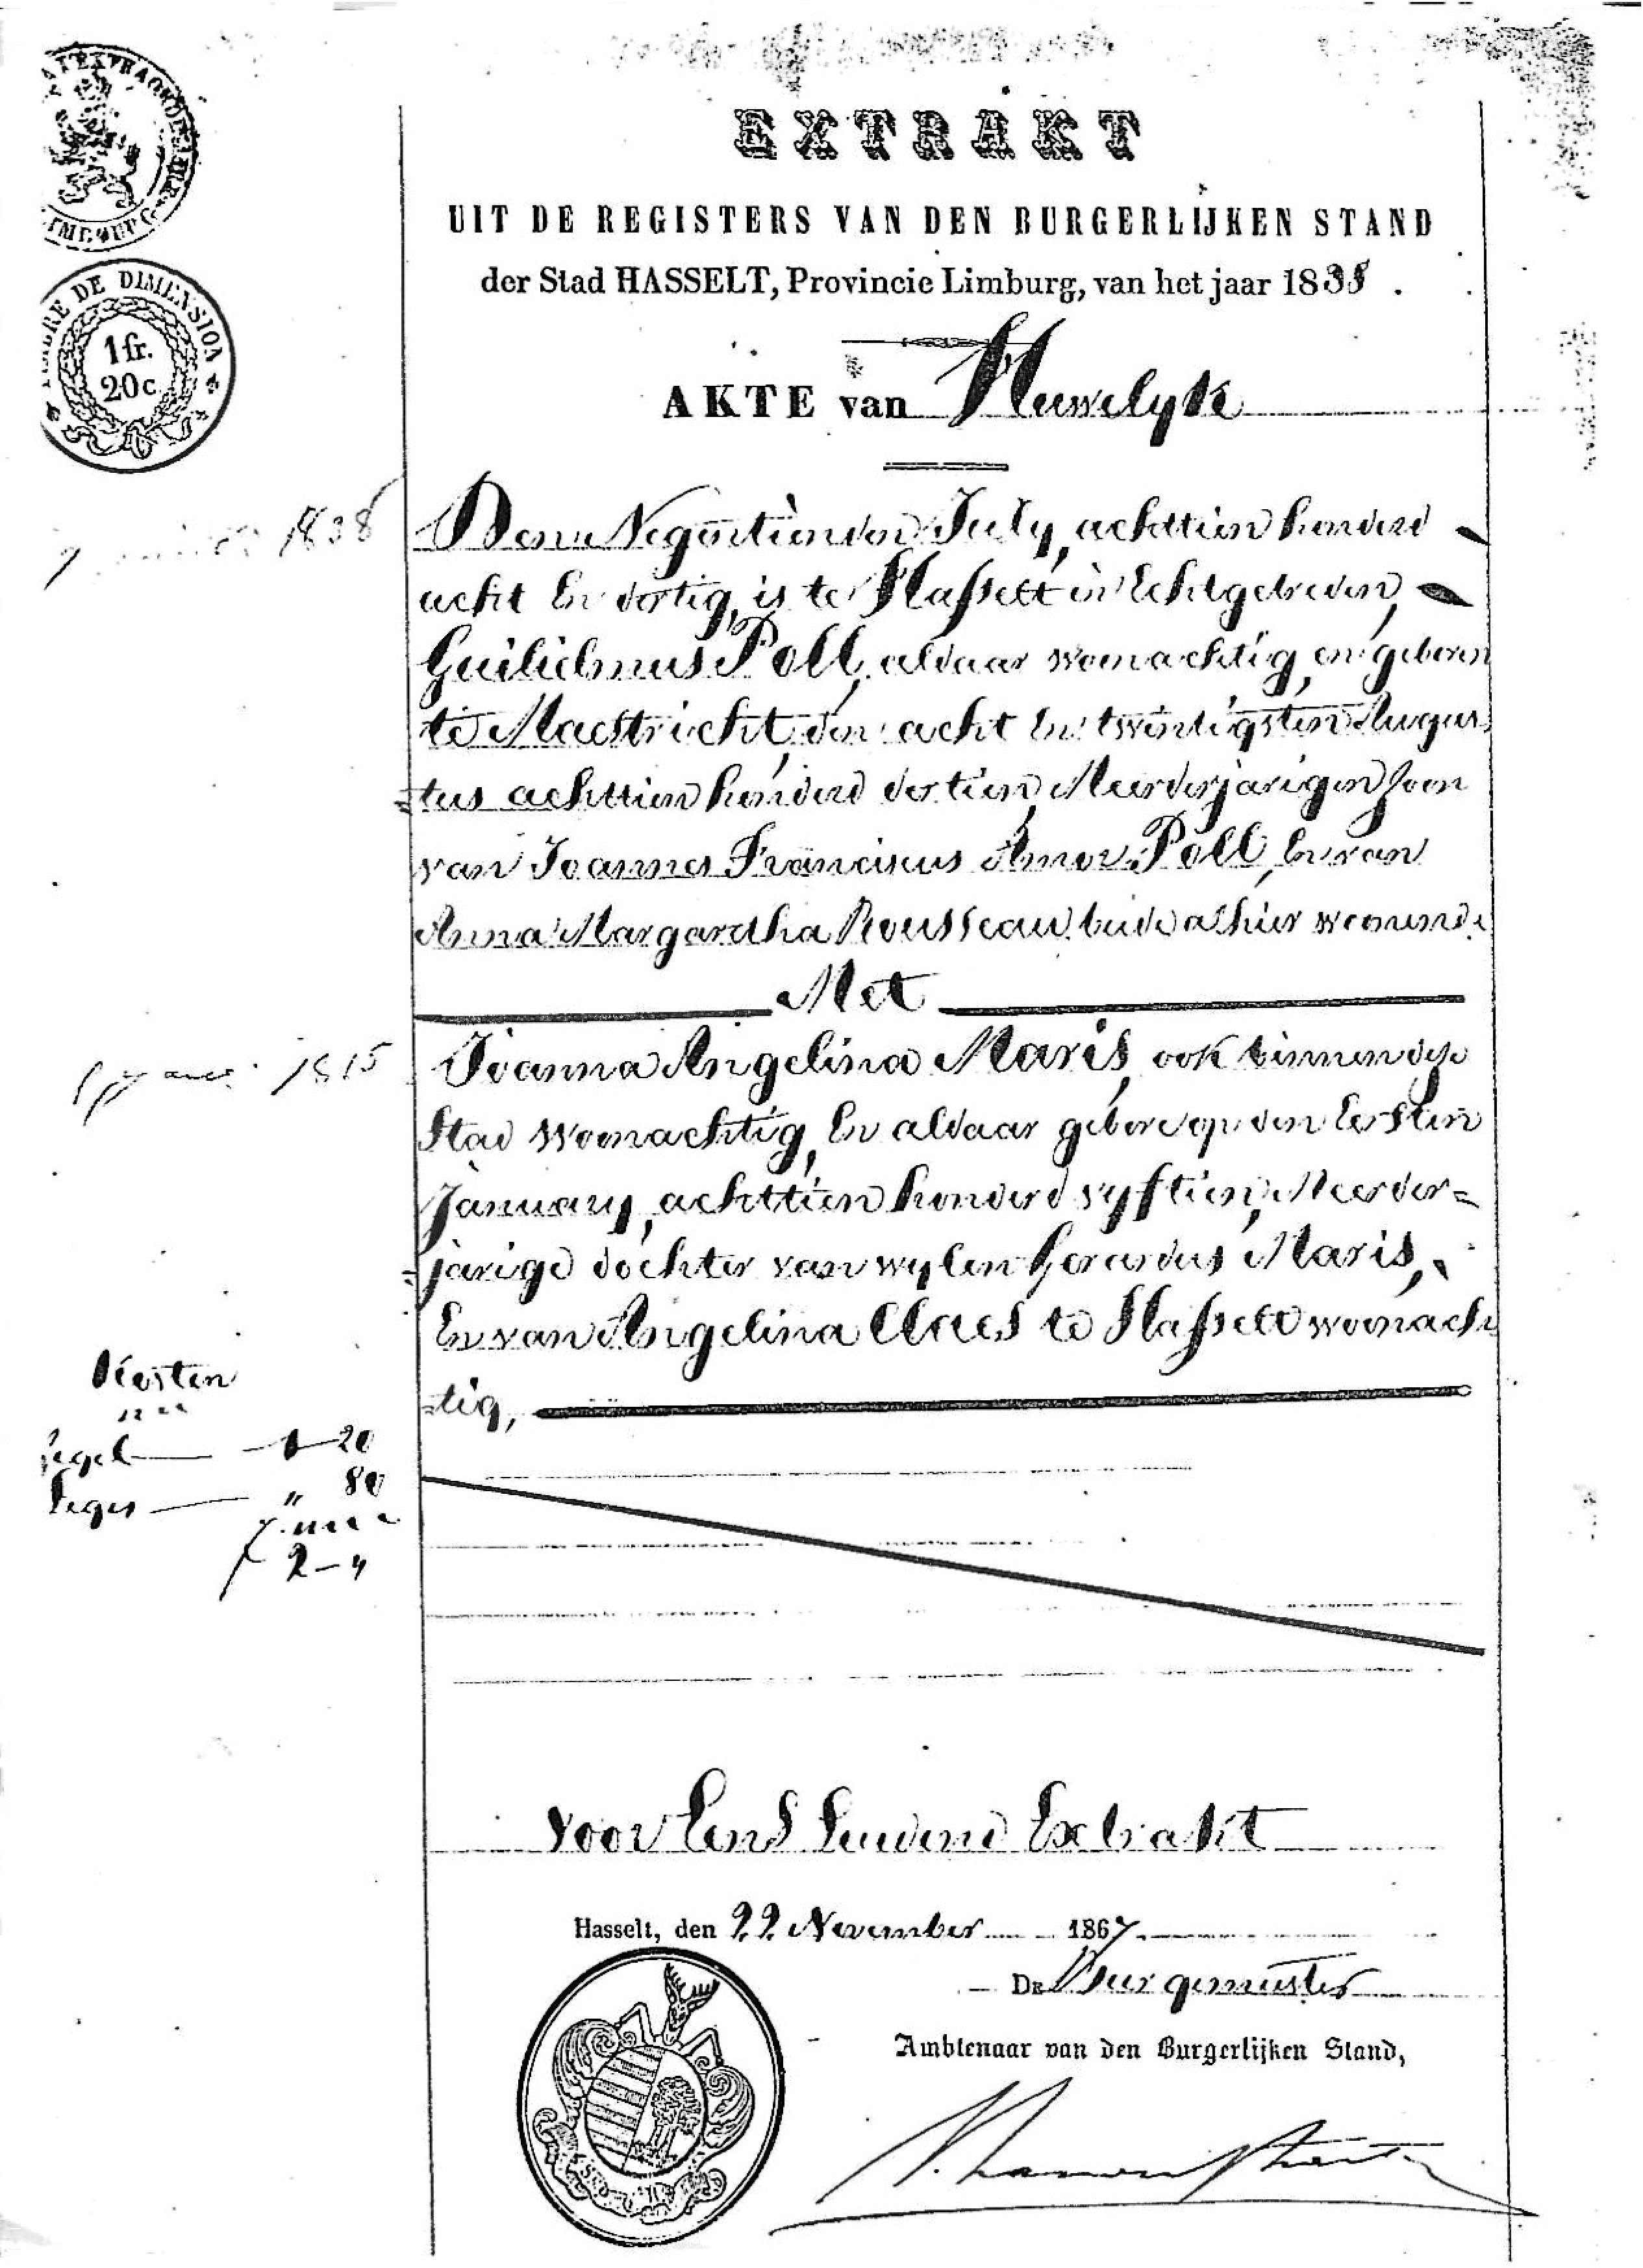 EXTRAKT
UIT DE REGISTERS VAN DEN BURGERLIJKEN STAND
der Stad HASSELT, Provincie Limburg, van het jaar 1838.
AKTE van Huwelyk
TIMBRE DE DIMENSION
1 fr.
20 c
1838
Den Negentienden July, achttien honderd
acht En dertig, is te Hasselt in Echt getreden,
Guilielmus Poll, aldaar woonachtig, en geboren
te Maestricht, den acht En twintigsten Augus
=tus achttien honderd dertien, Meerderjarigen Zoon
van Joannes Franciscus Amor Poll, En van
Anna Margaretha Rousseau beide alhier woonende
Met
1815
Joanna Angelina Maris, ook binnen dese
Stad woonachtig, En aldaar gebore op den Eersten
January, achttien honderd vyftien, Meerder=
=jarige dochter van wylen Gerardus Maris,
En van Angelina Claes te Hasselt woonach
=tig,
Kosten
Segel — 1-20
Leges — " 80
2 - "
Voor Eens Luidend Extrakt
Hasselt, den 22 November 1867
De Burgemeester
Ambtenaar van den Burgerlijken Stand,